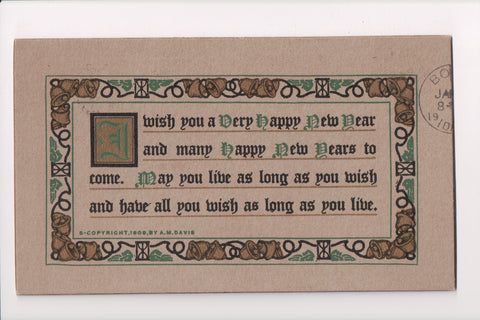 I wish you a Very Happy New Year
and many Happy New Years to
come. May you live as long as you wish
and have all you wish as long as you live.
COPYRIGHT, 1909, BY A.M. DAVIS
BO
JA
8-
19